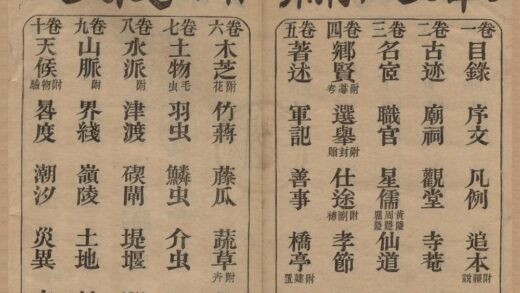 卷一 目錄 序文 凡例 追本
卷二 古迹 廟祠 觀堂 寺菴
卷三 名宦 職官 星儒 仙道
卷四 鄉賢 附墓考 選舉 附封贈 仕途 孝節
卷五 著述 軍記 善事 橋亭 附建置
卷六 木芝 附花 竹蔣 藤瓜 蔬草 附卉
卷七 土物 毛虫 羽虫 鱗虫 介虫
卷八 水派 附 津渡 碶閘 堤堰
卷九 山脈 附 界綫 嶺陵 土地
卷十 天候 附物驗 晷度 潮汐 災異